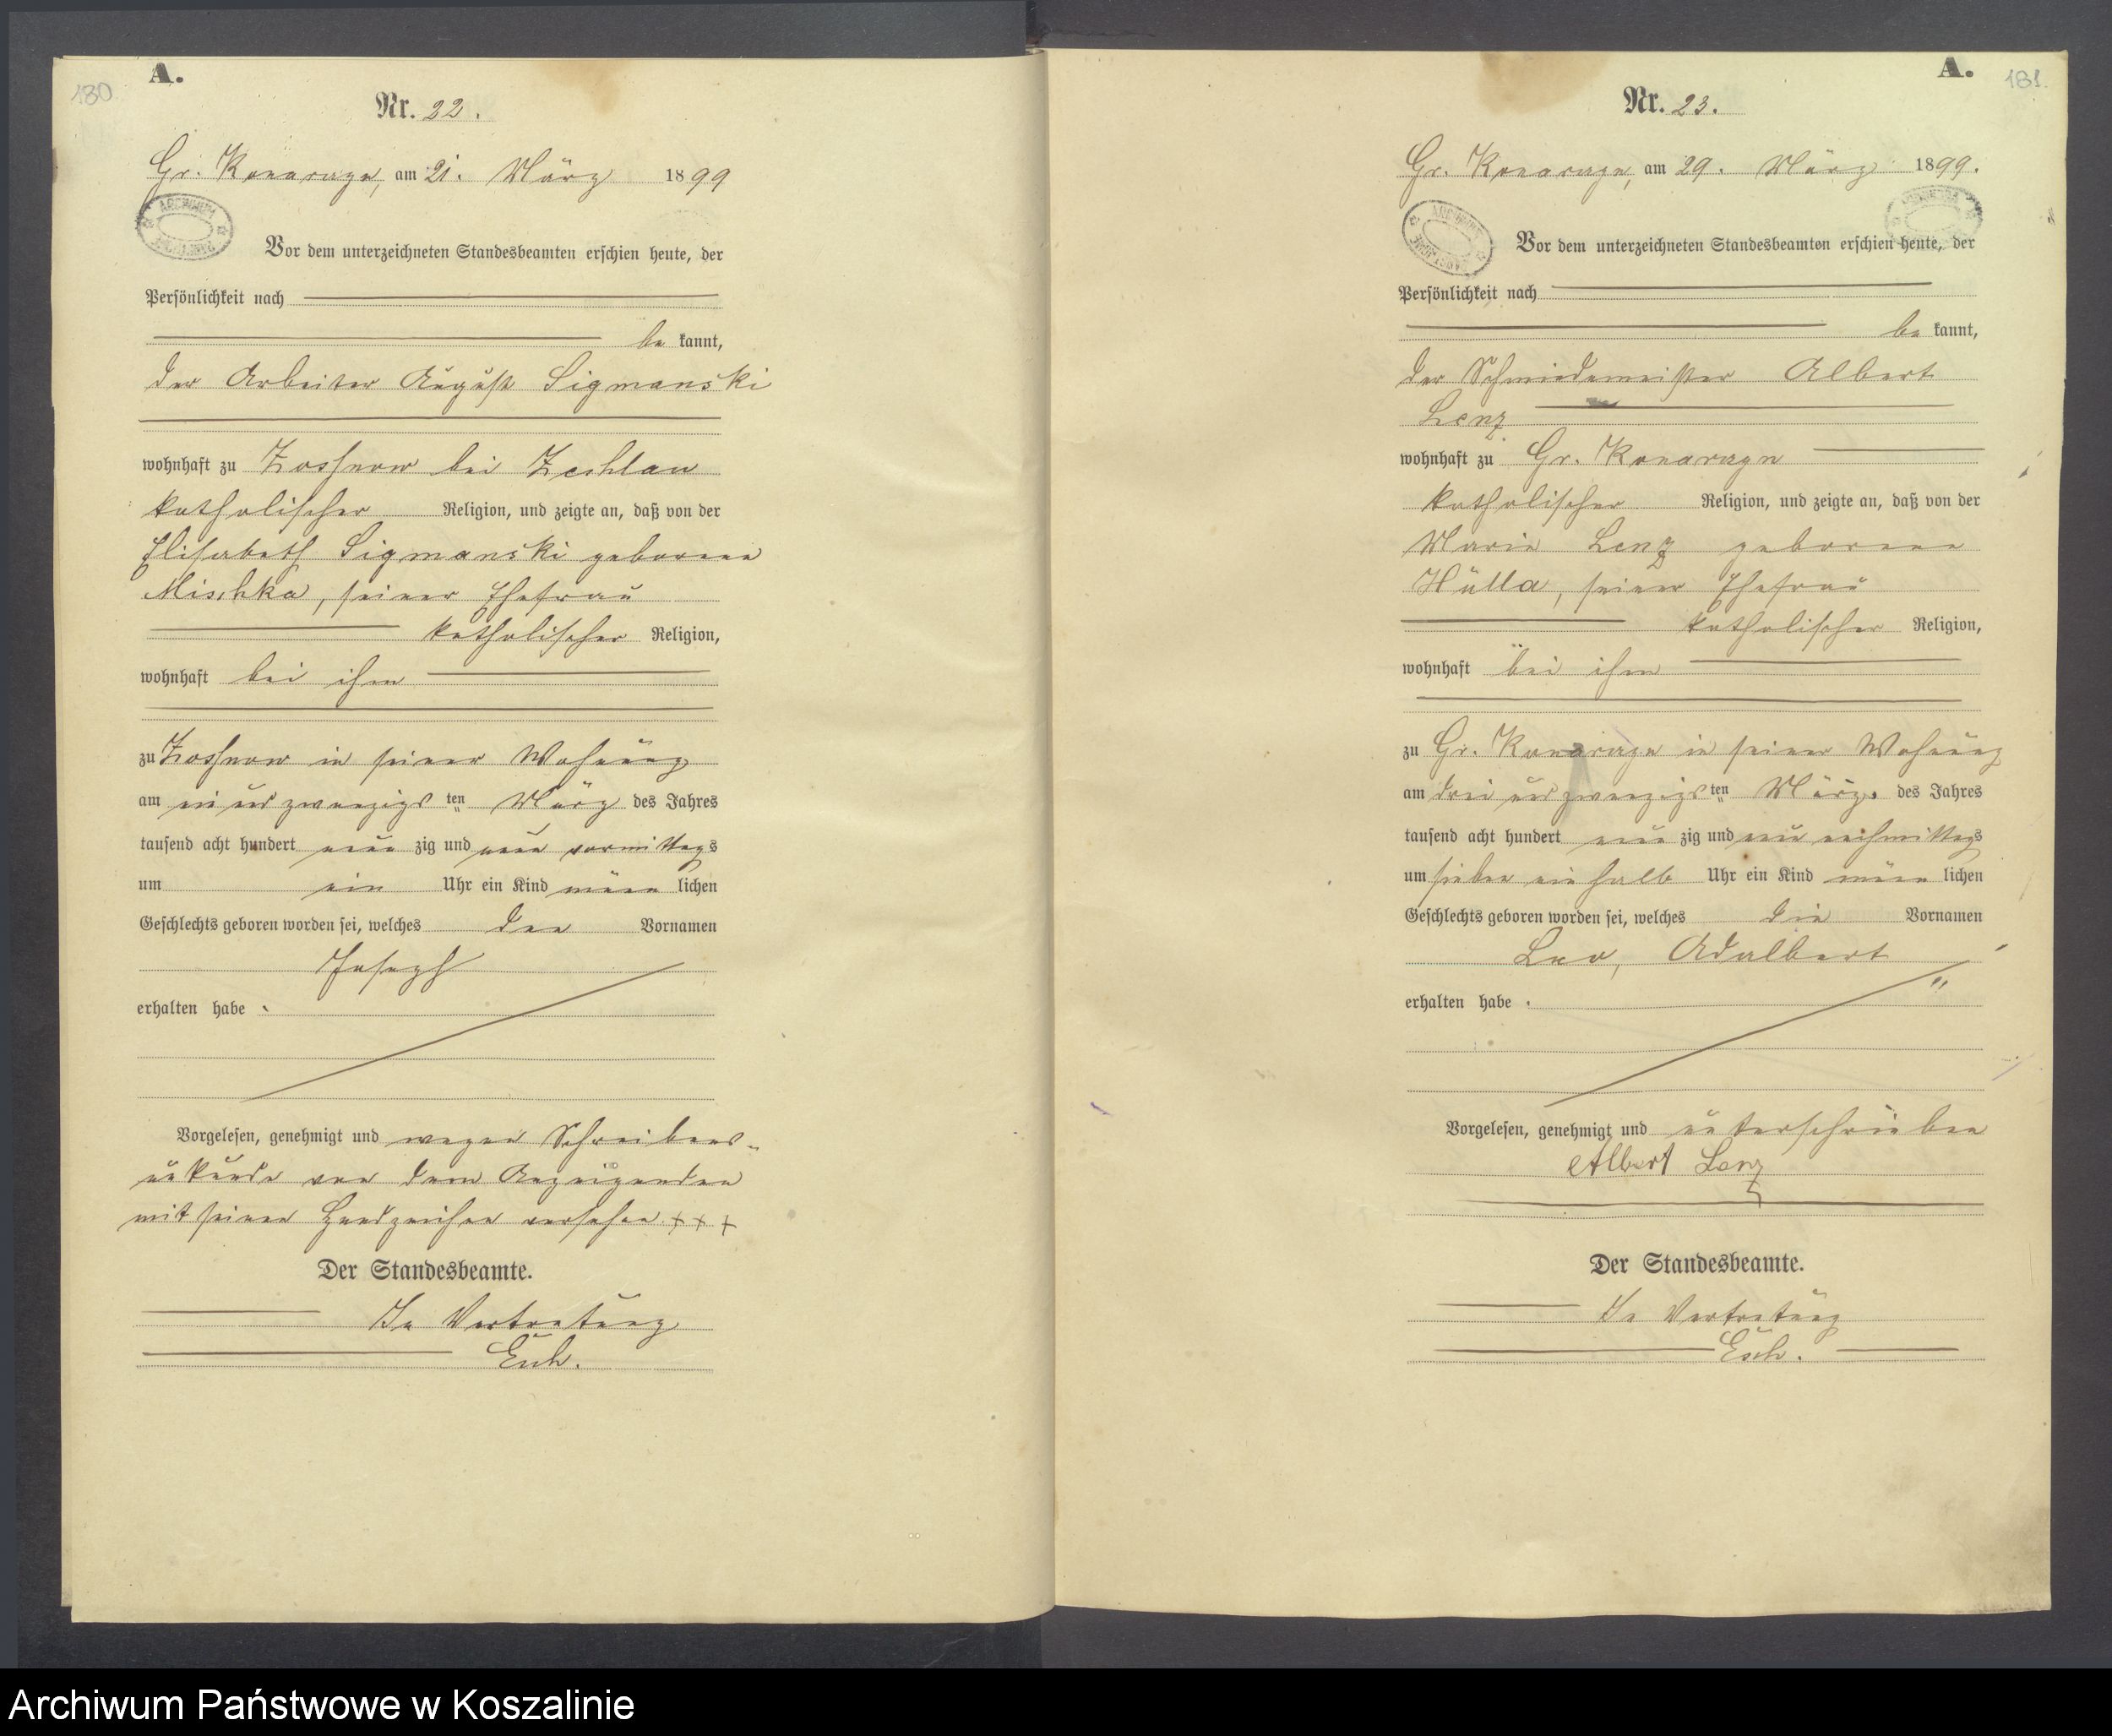 180
A.
Nr. 22.
Gr. Konarzyn, am 21. März 1899
Vor dem unterzeichneten Standesbeamten erschien heute, der
Persönlichkeit nach
be kannt,
der Arbeiter August Sigmanski
wohnhaft zu bei Zechlau
katholischer Religion, und zeigte an, daß von der
Elisabeth Sigmanski geborene
Mischka, seiner Ehefrau
katholischer Religion,
wohnhaft bei ihm
zu in seiner Wohnung
am ein und zwanzigs ten März des Jahres
tausend acht hundert neun zig und neun vormittags
um ein Uhr ein Kind männ lichen
Geschlechts geboren worden sei, welches den Vornamen
Joseph
erhalten habe.
Vorgelesen, genehmigt und wegen Schreibens-
unkunde von dem Anzeigenden
mit seinem Handzeichen versehen +++
Der Standesbeamte.
In Vertretung
181.
A.
Nr. 23.
Gr. Konarzyn, am 29. März 1899.
Vor dem unterzeichneten Standesbeamten erschien heute, der
Persönlichkeit nach
be kannt,
der Schmiedemeister Albert
Lenz
wohnhaft zu Gr. Konarzyn
katholischer Religion, und zeigte an, daß von der
Marie Lenz geborene
Hülla, seiner Ehefrau
katholischer Religion,
wohnhaft bei ihm
zu Gr. Konarzyn in seiner Wohnung
am drei und zwanzigs ten März. des Jahres
tausend acht hundert neun zig und neun nachmittags
um sieben ein halb Uhr ein Kind männ lichen
Geschlechts geboren worden sei, welches die Vornamen
Leo, Adalbert
erhalten habe.
Vorgelesen, genehmigt und unterschrieben
Albert Lenz
Der Standesbeamte.
In Vertretung
Archiwum Państwowe w Koszalinie